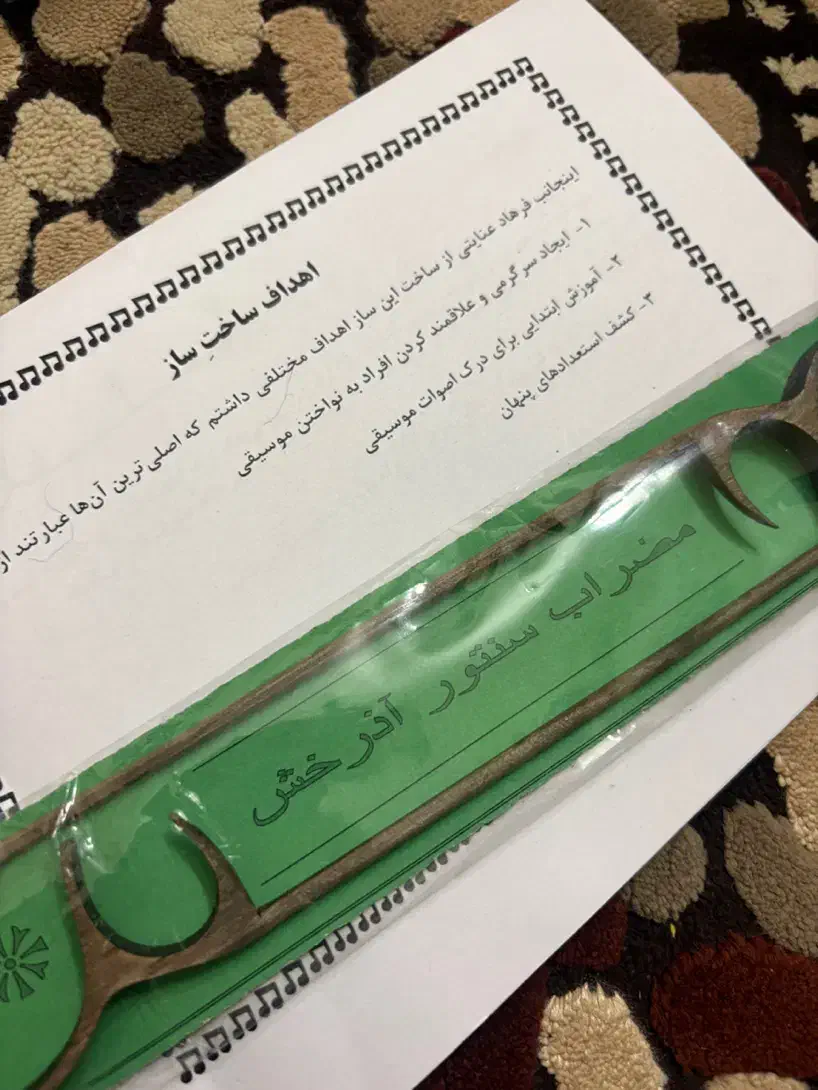 اهداف ساختِ ساز
اینجانب فرهاد عنایتی از ساخت این ساز اهداف مختلفی داشتم که اصلی ترین آن‌ها عبارتند از
۱- ایجاد سرگرمی و علاقمند کردن افراد به نواختن موسیقی
۲- آموزش ابتدایی برای درک اصوات موسیقی
۳- کشف استعدادهای پنهان
مضراب سنتور آذرخش